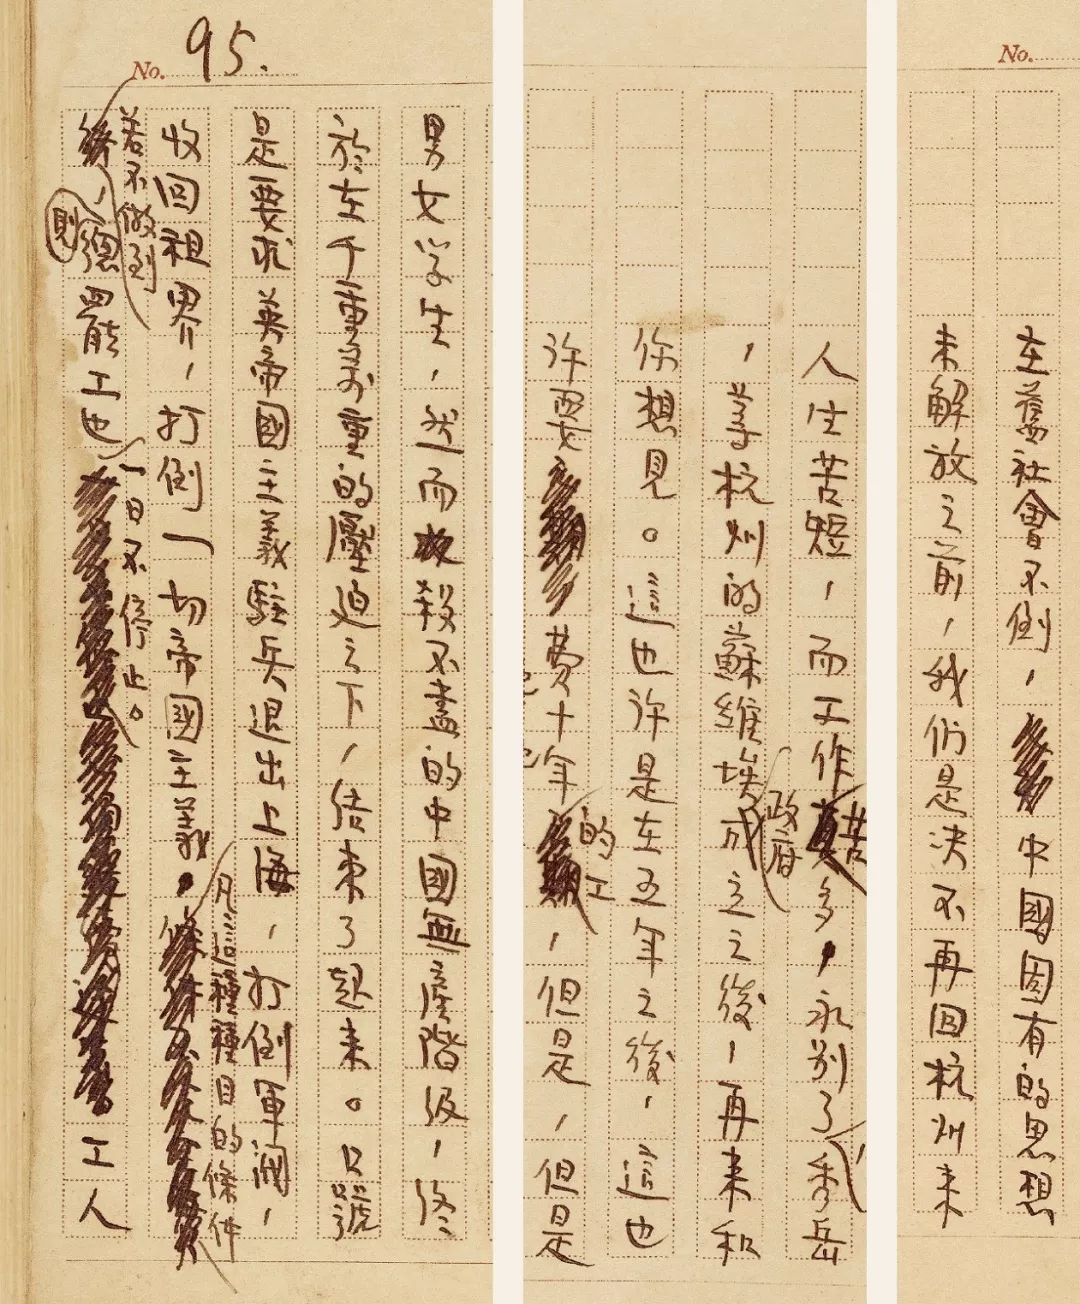 在舊社會不倒，中國固有的思想
未解放之前，我们是决不再回杭州来
人生苦短，而工作苦多，永别了秀岳
，等杭州的蘇維埃政府成立之後，再来和
你想見。這也许是在五年之後，這也
许要费十年的工，但是，但是
No. 95.
男女学生，然而殺不盡的中國無産階級，终
於在千重萬重的壓迫之下，结束了起来。口號
是要求英帝國主義駐兵退出上海，打倒軍閥，
收回租界，打倒一切帝國主義，凡這種種目的條件
若不做到，則總罷工也一日不停止。工人
No.